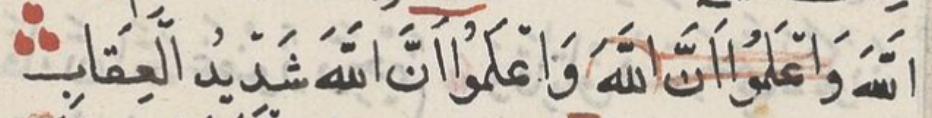 اللَّهَ وَاعْلَمُوا أَنَّ اللَّهَ وَاعْلَمُوا أَنَّ اللَّهَ شَدِيدُ الْعِقَابِ